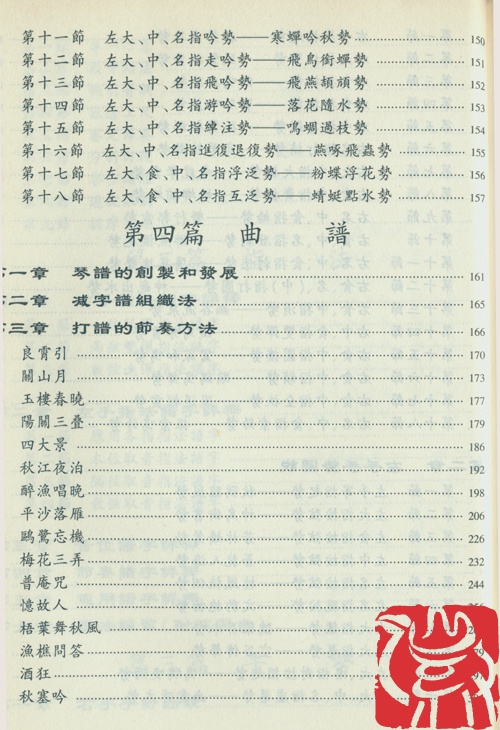 第十一節　左大、中、名指吟勢——寒蟬吟秋勢 150
第十二節　左大、中、名指走吟勢——飛鳥銜蟬勢 151
第十三節　左大、中、名指飛吟勢——飛燕頡頏勢 152
第十四節　左大、中、名指游吟勢——落花隨水勢 153
第十五節　左大、中、名指綽注勢——鳴蜩過枝勢 154
第十六節　左大、中、名指進復退復勢——燕啄飛蟲勢 155
第十七節　左大、食、中、名指浮泛勢——粉蝶浮花勢 156
第十八節　左大、食、中、名指互泛勢——蜻蜓點水勢 157
第四篇　曲　譜
第一章　琴譜的創製和發展 161
第二章　减字譜組織法 165
第三章　打譜的節奏方法 166
良霄引 170
關山月 173
玉樓春曉 177
陽關三疊 179
四大景 186
秋江夜泊 192
醉漁唱晚 198
平沙落雁 206
鷗鷺忘機 226
梅花三弄 232
普庵咒 244
憶故人
梧葉舞秋風
漁樵問答
酒狂
秋塞吟